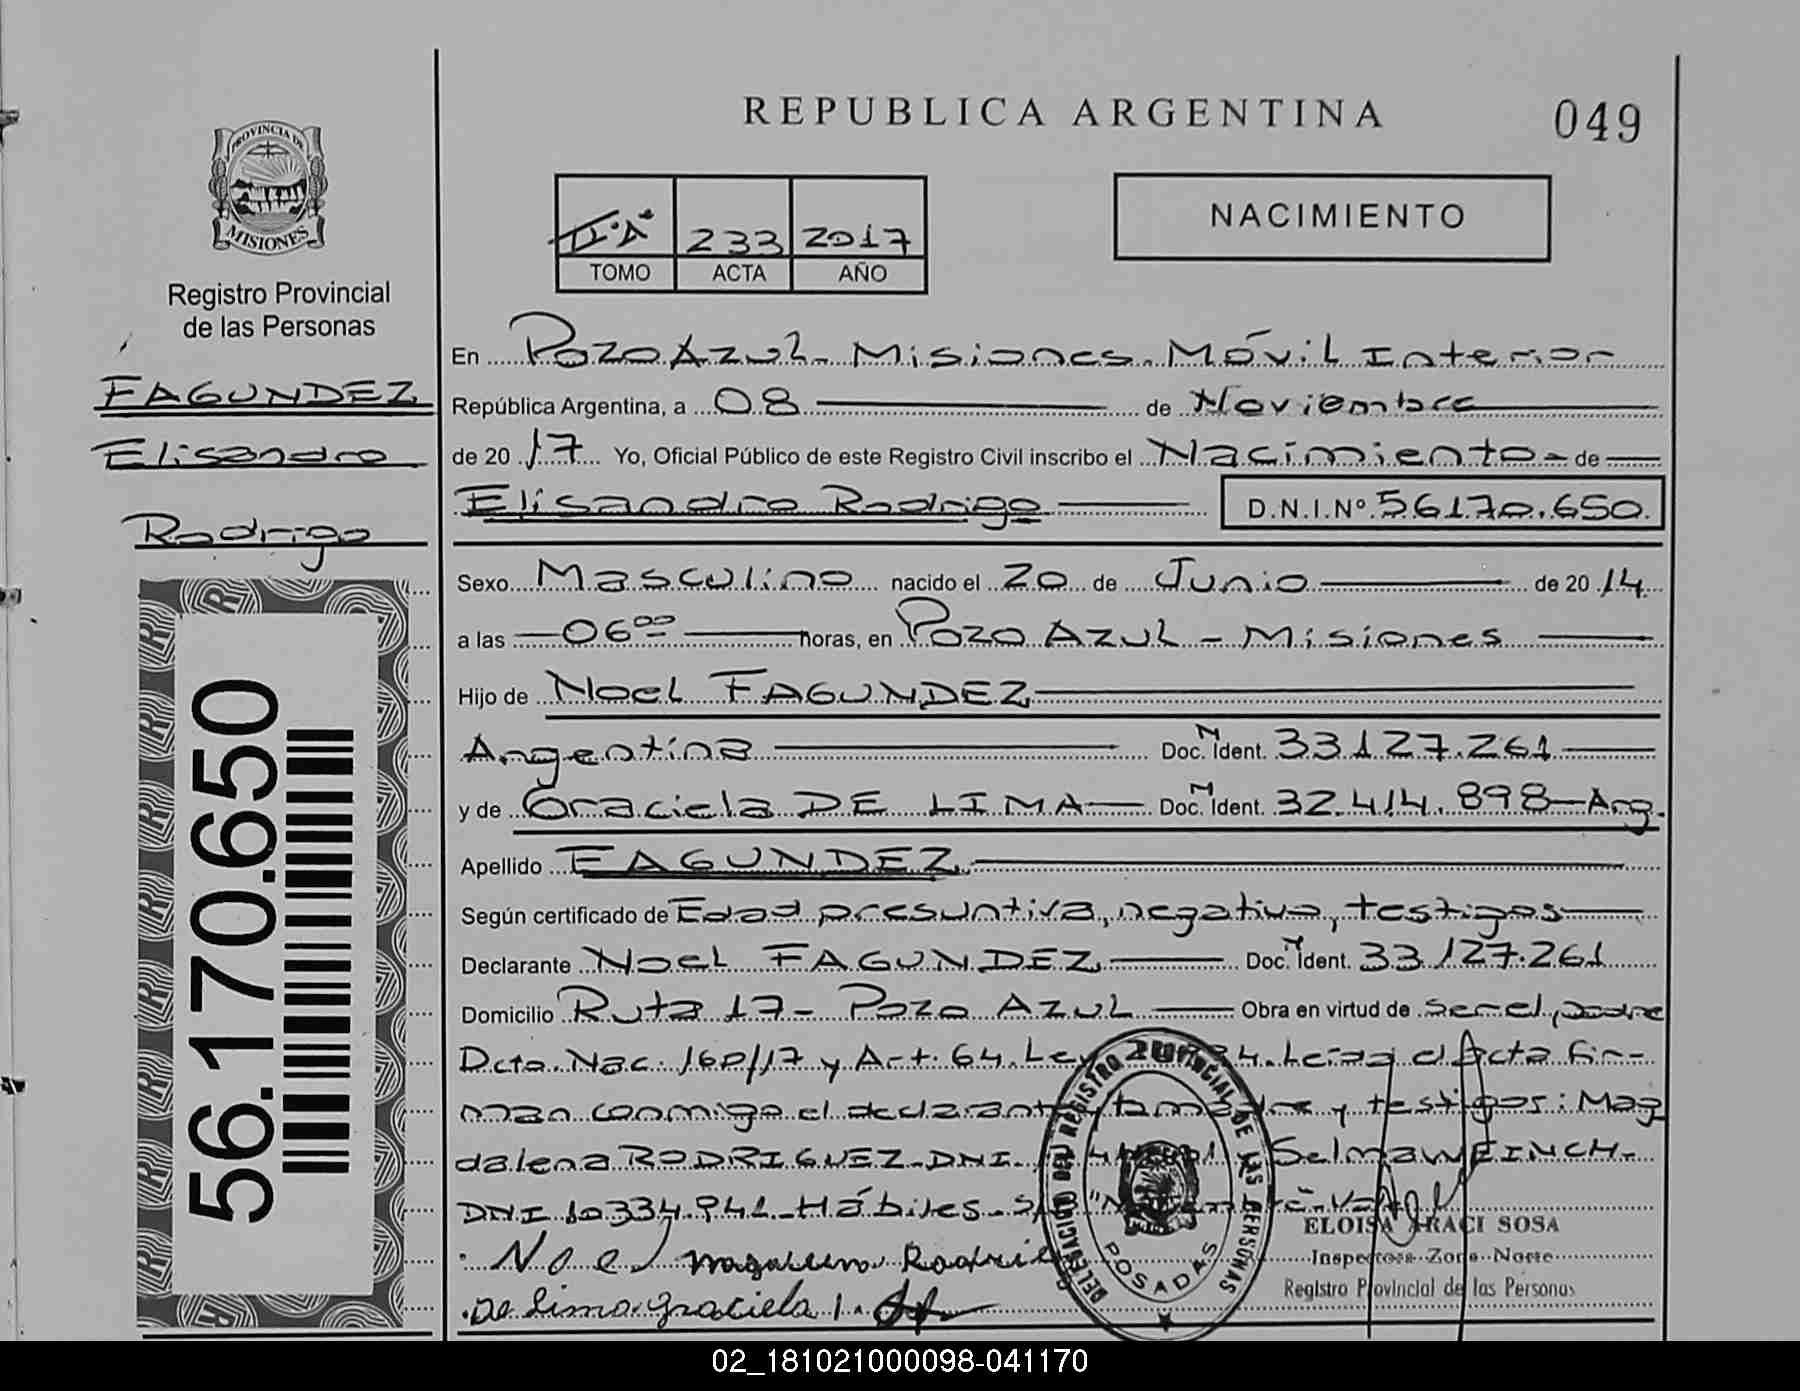 REPUBLICA ARGENTINA
049
PROVINCIA DE
MISIONES
Registro Provincial
de las Personas
FAGUNDEZ
Elisandro
Rodrigo
56.170.650
233 2017
TOMO ACTA AÑO
NACIMIENTO
En Pozo Azul - Misiones. Móvil Interior
República Argentina, a 08 de Noviembre
de 2017 Yo, Oficial Público de este Registro Civil inscribo el Nacimiento - de
Elisandro Rodrigo D.N.I.Nº 56170.650.
Sexo Masculino nacido el 20 de Junio de 2014
a las 06 00 horas, en Pozo Azul - Misiones
Hijo de Noel FAGUNDEZ
Argentina Doc. N Ident. 33.127.261
y de Graciela DE LIMA Doc. N Ident. 32.414.898 - Arg.
Apellido FAGUNDEZ
Según certificado de Edad presuntiva, negativo, testigos
Declarante Noel FAGUNDEZ Doc. N Ident. 33.127.261
Domicilio Ruta 17 - Pozo Azul Obra en virtud de ser el padre
Dcto. Nac. 160/17 y Art. 64. Ley Leida el Acta fir-
man conmigo el declarante y testigos: Mag
dalena RODRIGUEZ - DNI. Selma WEINCH -
DNI 10334.941 - Hábiles.
Noel Magdalena
De Lima Graciela
DELEGACION DEL REGISTRO PROVINCIAL DE LAS PERSONAS
POSADAS
ELOISA ARACI SOSA
Inspectora Zona Norte
Registro Provincial de las Personas
02_181021000098-041170